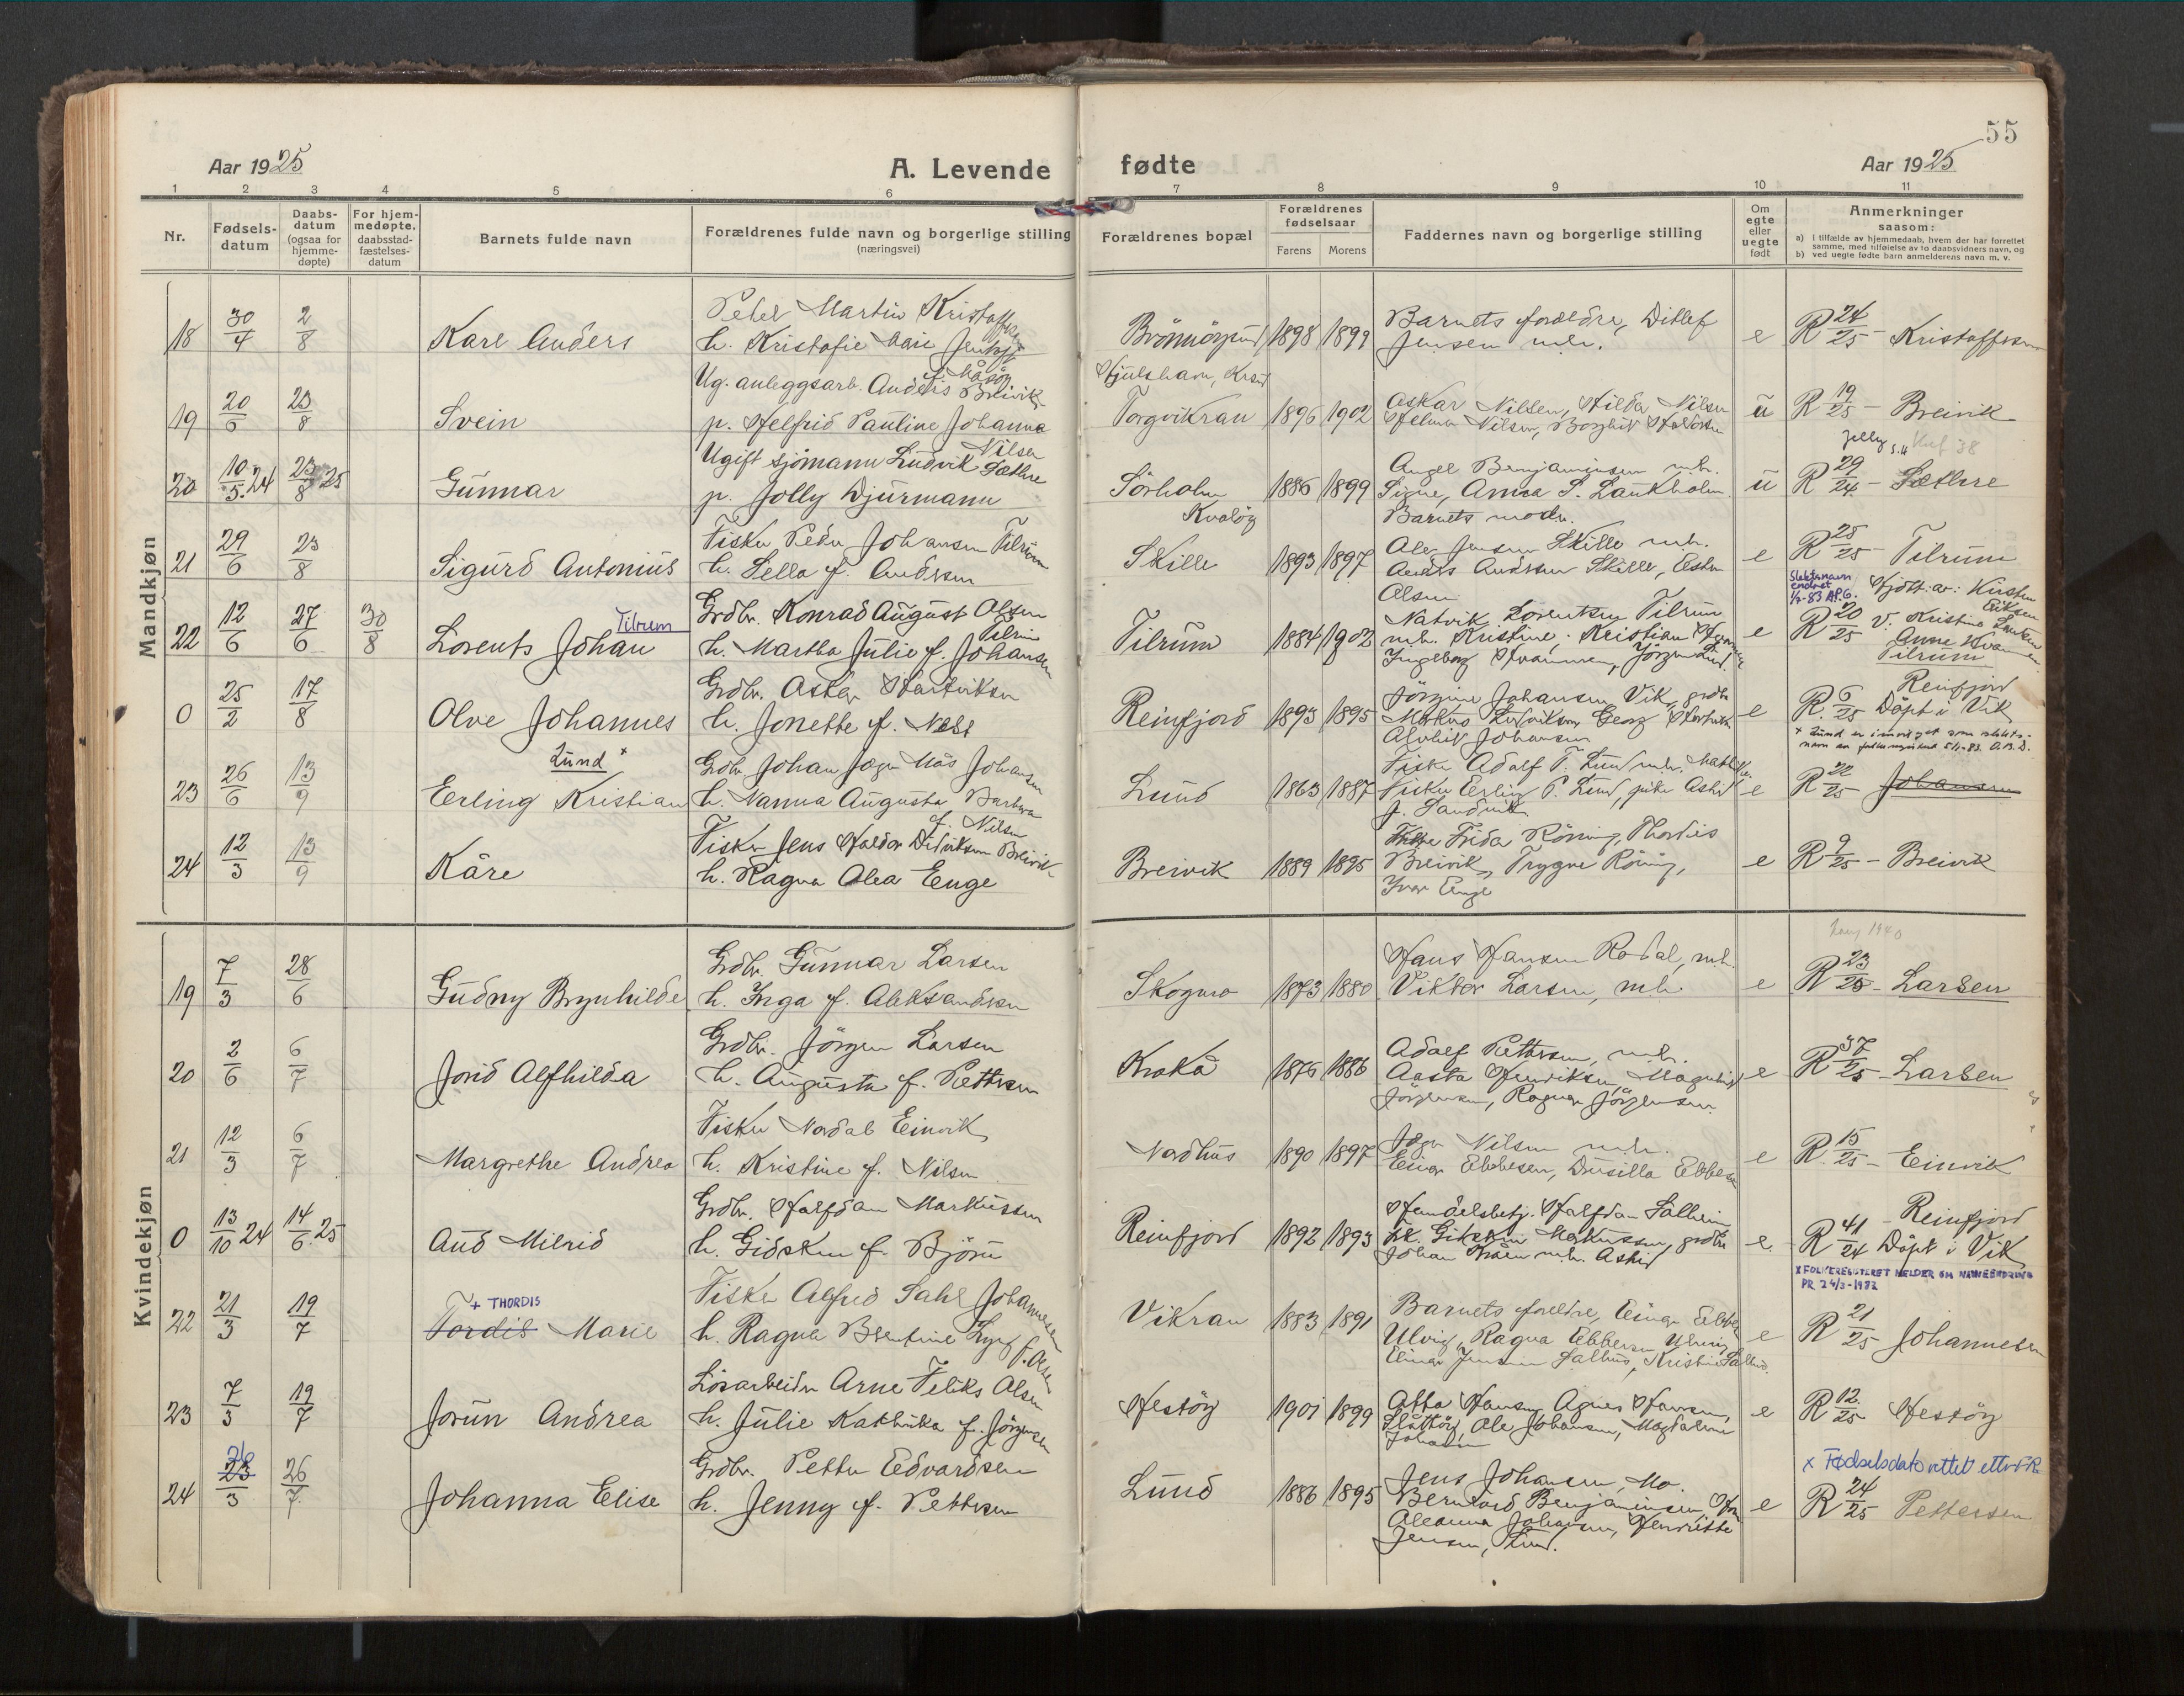 55
Aar 1925
A. Levende fødte
Aar 1925
1 2 3 4 5 6 7 8 9 10 11
Nr.
Fødsels-
datum
Daabs-
datum
(ogsaa for
hjemme-
døpte)
For hjem-
medøpte.
daabsstad-
fæstelses-
datum
Barnets fulde navn
Forældrenes fulde navn og borgerlige stilling
(næringsvei)
Forældrenes bopæl
Forældrenes
fødselsaar
Farens Morens
Faddernes navn og borgerlige stilling
Om
egte
eller
uegte
født
Anmerkninger
saasom:
a) i tilfælde av hjemmedaab, hvem der har forrettet
samme, med tilføielse av to daabsvidners navn, og
b) ved uegte fødte barn anmelderens navn m. v.
Mandkjøn
18 30/4 2/8 Kare Anders
Peter Martin Kristoffersen
h. Kristofie
1898 1899
Barnets foreldre, Ditlef
Jensen m.h.
e R 24/25 - Kristoffersen
19 20/6 23/8 Svein
Ug. anleggsarb. Anders Breivik
p. Helfrid Pauline Johanna
Nilsen
Torgvikran 1896 1902
Oskar Nilsen, Hilda Nilsen
Helmer Nilsen, Borghild
u R 19/25 - Breivik
20 10/5.24 23/8 25 Gunnar
Ugift sjömann Ludvik Sæthre
p. Jolly Djurmann
Sörholm
Kvalöy
1886 1899
Angel Benjaminsen m.h.
Signe, Anna S. Laukholm
Barnets moder.
u R 29/24 - Sæthre
21 29/6 23/8 Sigurd Antonius
Fisker Peder Johansen Tilrum
h. Sella f. Andersen
Skille 1893 1897
Ole Jensen Skille m.h.
Anders Andersen Skille,
Olsen
e R 28/25 - Tilrum
Slektsnavn
endret
22 12/6 27/6 30/8 Lorents Johan Tilrum
Grdbr. Konrad August Olsen
Tilrum
h. Martha Julie f. Johansen
Tilrum 1884 1902
Natvik Lorentsen Tilrum
m.h. Kristine, Kristian
Ingeborg
e R 20/25
Hjdt. av: Kirsten
Eriksen
v. Kristine
Anne
Tilrum
0 25/2 17/8 Olve Johannes
Grdbr. Oskar Hartviksen
h. Jonette f.
Reinfjord 1893 1895
Jörgine Johansen Vik,
Markus Ludviksen, Georg
Johansen
e R. 6/25 Reinfjord
Döpt i Vik
+ Lund er innvilget som slekts-
navn
23 26/6 13/9 Lund +
Erling Kristian
Grdbr Johan Johansen
h. Nanna Augusta Barbara
f. Nilsen
Lund 1863 1887
Fisker Adolf T. Lund m.h.
Fisker Erling P. Lund, pike
J. Sandvik
e R 22/25 Johansen
24 12/3 13/9 Kåre
Fisker Jens Haldor Didriksen Breivik
h. Ragna Olea Enge
Breivik 1889 1895
Frida Röning, Thordis
Breivik, Trygve Röning,
Ivar Enge
e R 9/25 - Breivik
Kvindekjøn
19 7/3 28/6 Gudny Brynhilde
Grdbr. Gunnar Larsen
h. Inga f. Aleksandersen
Skogmo 1873 1880
Hans Hansen Rodal, m.h.
Viktor Larsen, m.h.
e R 23/25 - Larsen
20 2/6 6/7 Jorid Alfhilda
Grdbr. Jörgen Larsen
h. Augusta f. Pettersen
Kroka 1876 1886
Adolf Pettersen, m.h.
Aasta Henriksen, Magnhild
Jörgensen, Ragnar Jörgensen
e R 37/25 - Larsen
21 12/3 6/7 Margrethe Andrea
Fisker Nordal Einvik
h. Kristine f. Nilsen
Nadhus 1890 1897
Nilsen m.h.
Einar Ebbesen, Drusilla Ebbesen
e R. 15/25 - Einvik
0 13/10 24 14/6.25 Aud Milrid
Grdbr. Halfdan Markussen
h. Gidsken f. Björu
Reinfjord 1892 1893
Handelsbetj. Halfdan Solheim
Markussen,
Johan m.h.
e. R 41/24 - Reinfjord
Döpt i Vik
X FOLKEREGISTERET MELDER OM NAVNEENDRING
PR 24/3-1982
22 21/3 19/7 + THORDIS
Tordis Marie
Fisker Alfred Johannesen
h. Ragna Bentine
f. Olsen
Vikran 1883 1891
Barnets foreldre, Einar Ebbesen
Ulvig, Ragna Ebbesen Ulvig
Einar Jensen Salhus, Kristine Salhus.
e R 21/25 Johannesen
23 7/3 19/7 Jorun Andrea
Lösarbeider Arne Feliks Olsen
h. Julie Kathinka f. Jörgensen
Hestöy 1901 1899
Hansen, Agnes Hansen,
Slåttöy, Ole Johansen, Magdalene
Johansen
e R 12/25 Hestöy
24 26 23/3 26/7 Johanna Elise
Grdbr. Petter Edvardsen
h. Jenny f. Pettersen
Lund 1886 1895
Jens Johansen, Mo.
Bernhard Benjaminsen,
Oleanna Johansen, Henriette
Jensen, Lund.
x Fødselsdato rettet etter
e R 24/25 Pettersen